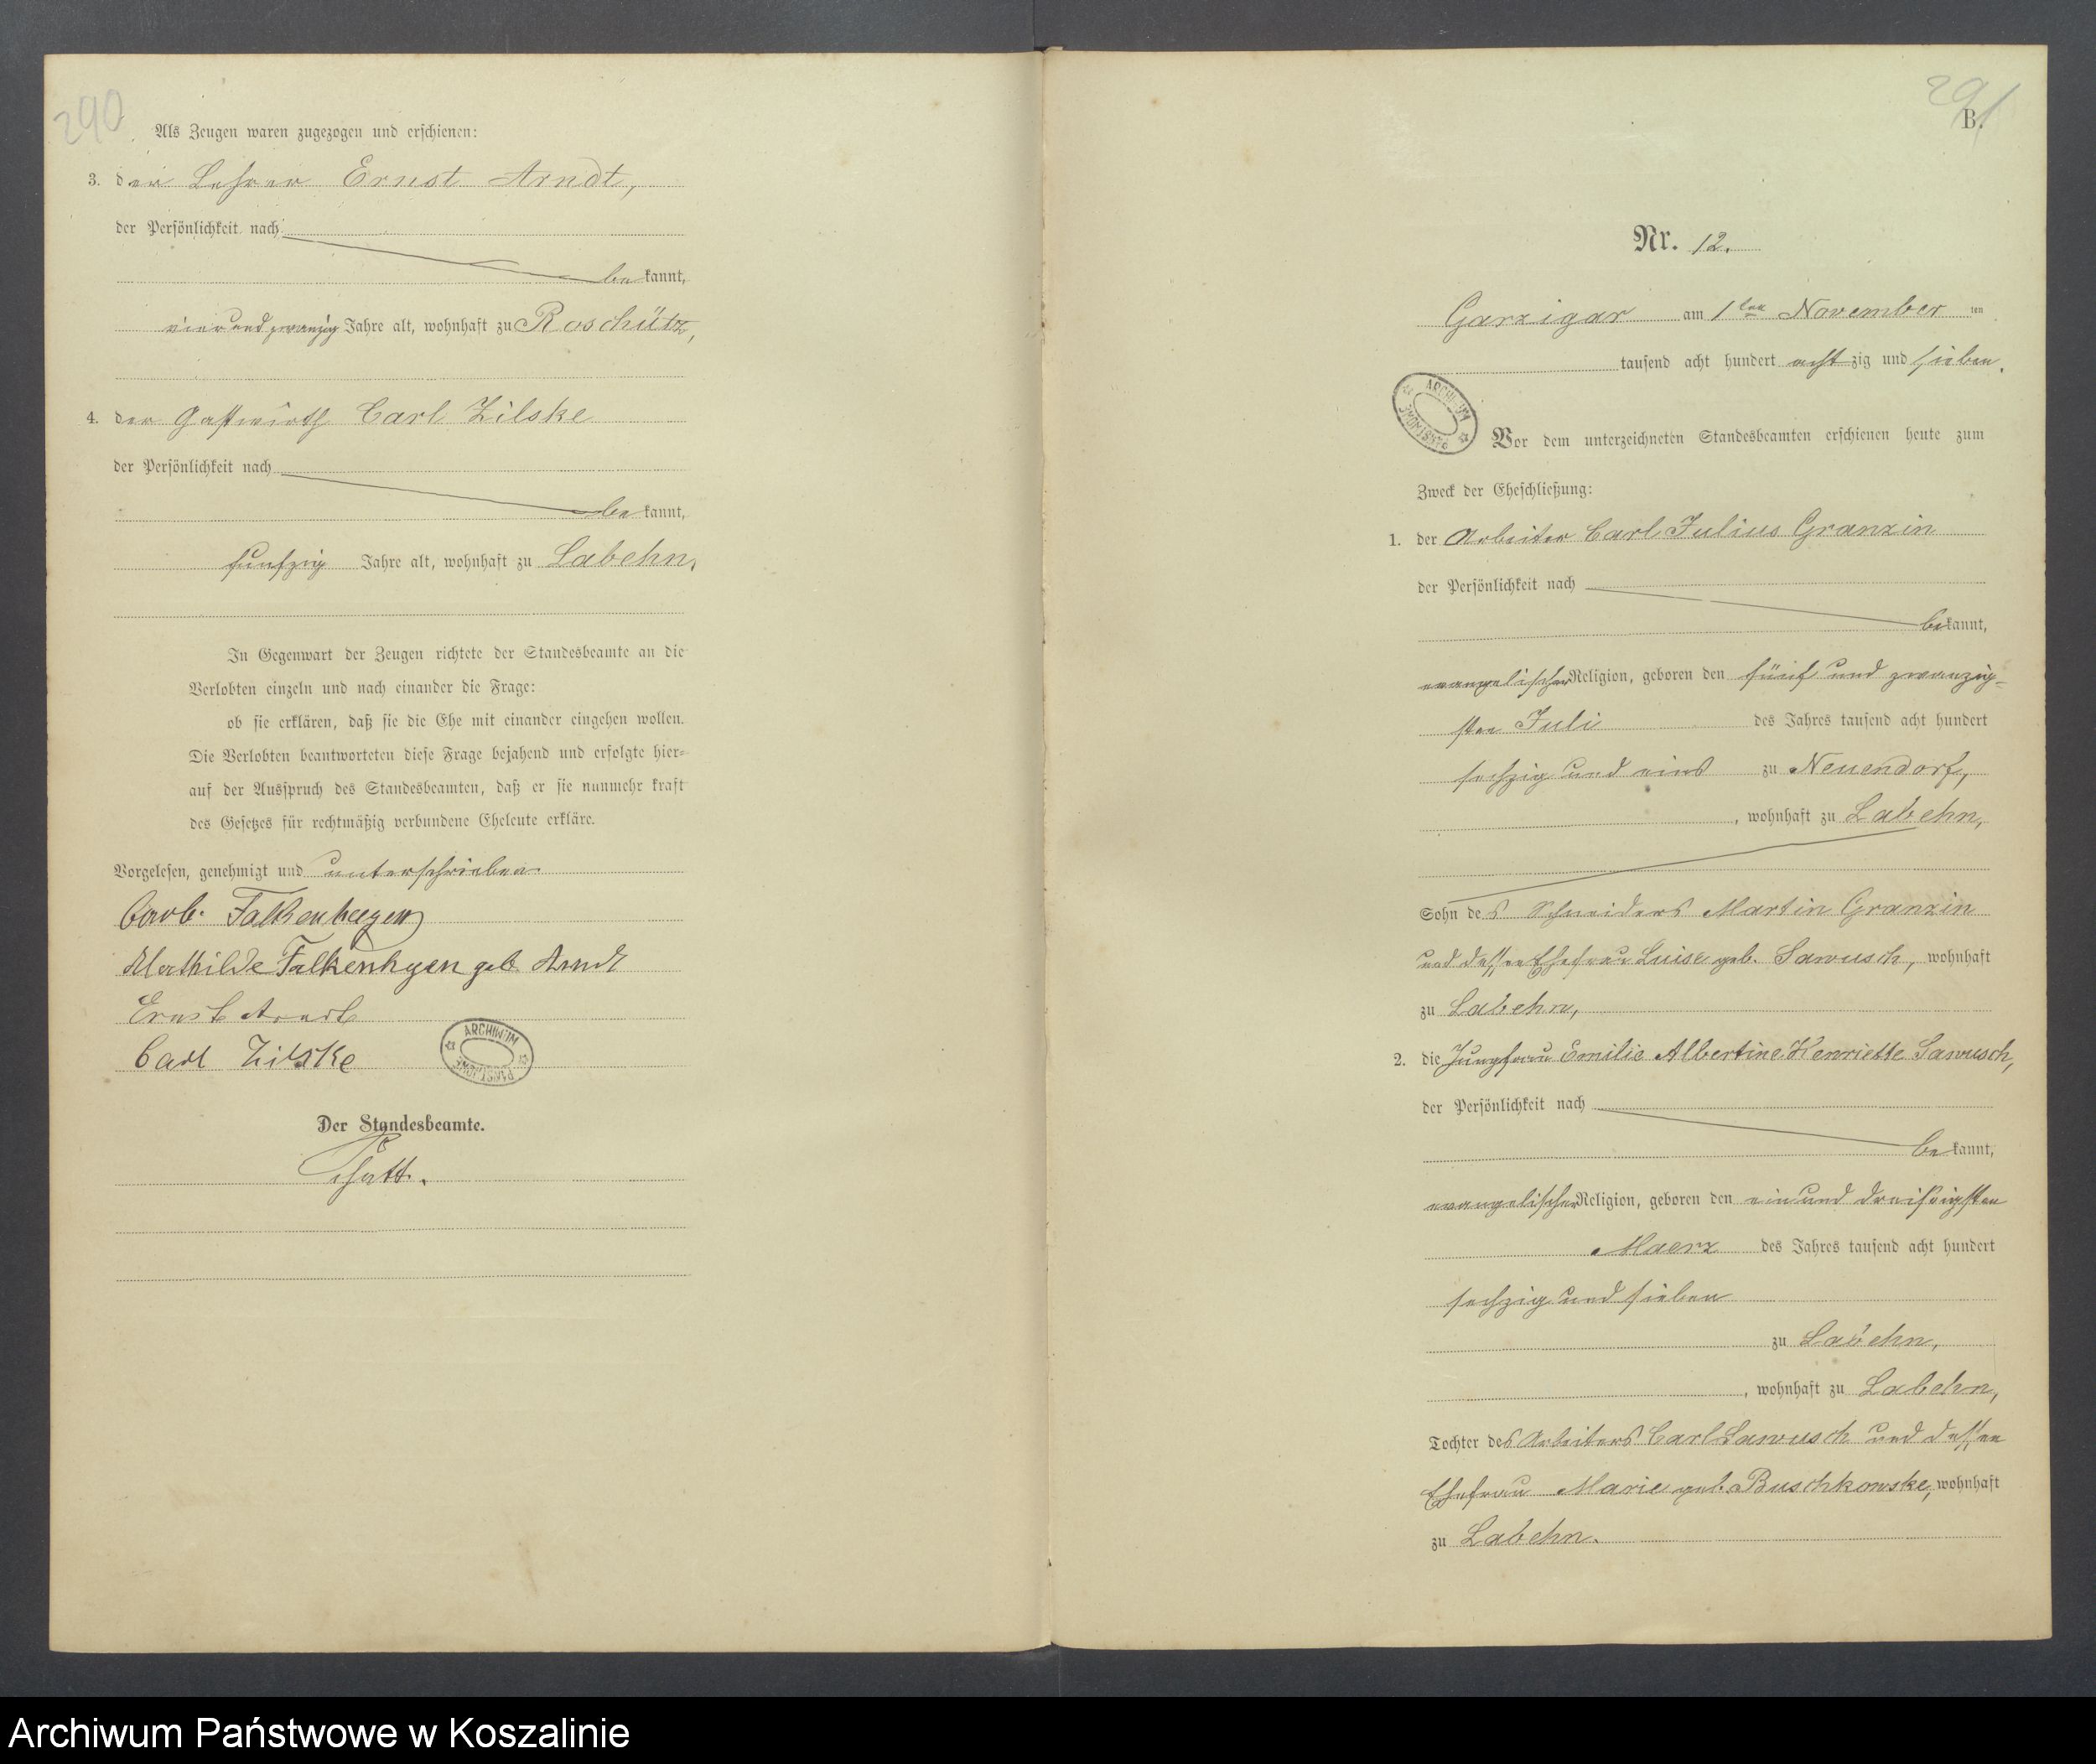 290
Als Zeugen waren zugezogen und erschienen:
3. der Lehrer Ernst Arndt,
der Persönlichkeit nach
be kannt,
vier und zwanzig Jahre alt, wohnhaft zu Roschütz,
4. der Gastwirth Carl Zilske
der Persönlichkeit nach
be kannt,
funfzig Jahre alt, wohnhaft zu Labehn,
In Gegenwart der Zeugen richtete der Standesbeamte an die
Verlobten einzeln und nach einander die Frage:
ob sie erklären, daß sie die Ehe mit einander eingehen wollen.
Die Verlobten beantworteten diese Frage bejahend und erfolgte hier-
auf der Ausspruch des Standesbeamten, daß er sie nunmehr kraft
des Gesetzes für rechtmäßig verbundene Eheleute erkläre.
Vorgelesen, genehmigt und unterschrieben
Falkenhagen
Mathilde Falkenhgen geb Arndt
Ernst Arndt
Carl Zilske
ARCHIWUM PAŃSTWOWE
Der Standesbeamte.
291
B.
Nr. 12.
Garzigar am 1ten November ten
tausend acht hundert acht zig und sieben.
ARCHIWUM PAŃSTWOWE
Vor dem unterzeichneten Standesbeamten erschienen heute zum
Zweck der Eheschließung:
1. der Arbeiter Carl Julius Granzin
der Persönlichkeit nach
be kannt,
evangelischer Religion, geboren den fünf und zwanzig-
sten Juli des Jahres tausend acht hundert
sechzig und eins zu Neuendorf,
, wohnhaft zu Labehn,
Sohn des Schneiders Martin Granzin
und dessen Ehefrau Luise geb. Sawusch, wohnhaft
zu Labehn,
2. die Jungfrau Emilie Albertine Henriette Sawusch,
der Persönlichkeit nach
be kannt,
evangelischer Religion, geboren den ein und dreißigsten
Maerz des Jahres tausend acht hundert
sechzig und sieben
zu Labehn,
, wohnhaft zu Labehn,
Tochter des Arbeiters Carl Sawusch und dessen
Ehefrau Marie geb. Buschkowske, wohnhaft
zu Labehn.
Archiwum Państwowe w Koszalinie